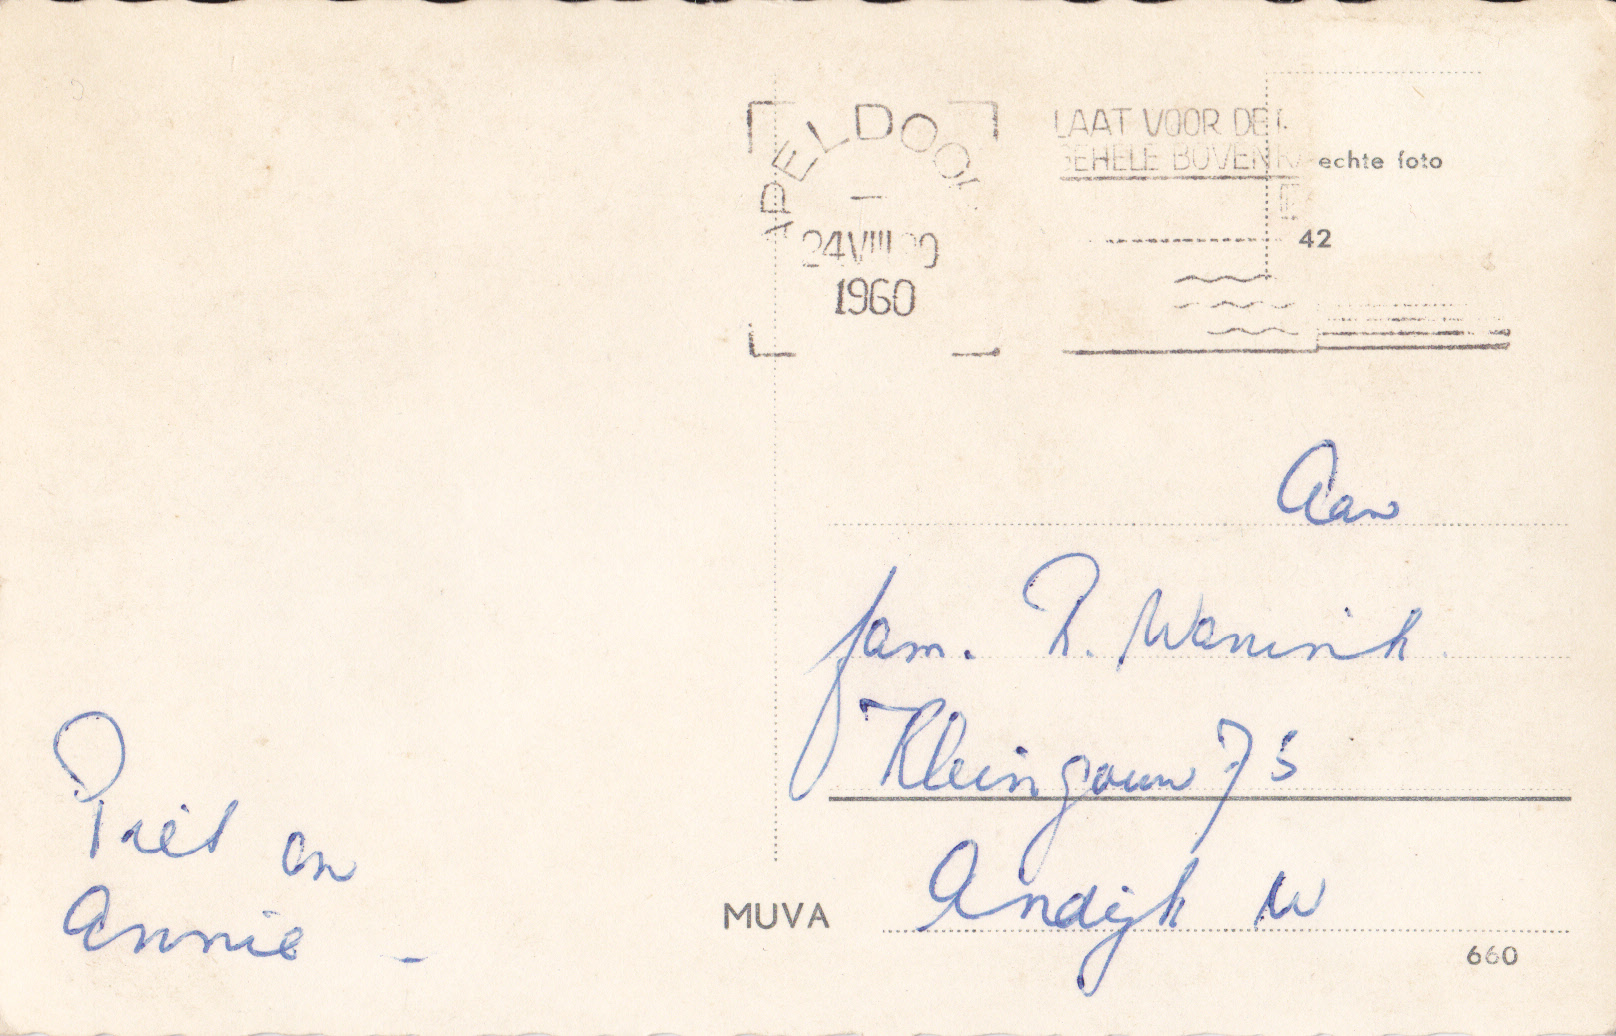 APELDOO
24 VIII
1960
LAAT VOOR DE
GEHELE BOVENKA
echte foto
42
Aan
fam. P. Wanink.
Kleingouw 75
Andijk W
Piet en
Annie
MUVA
660